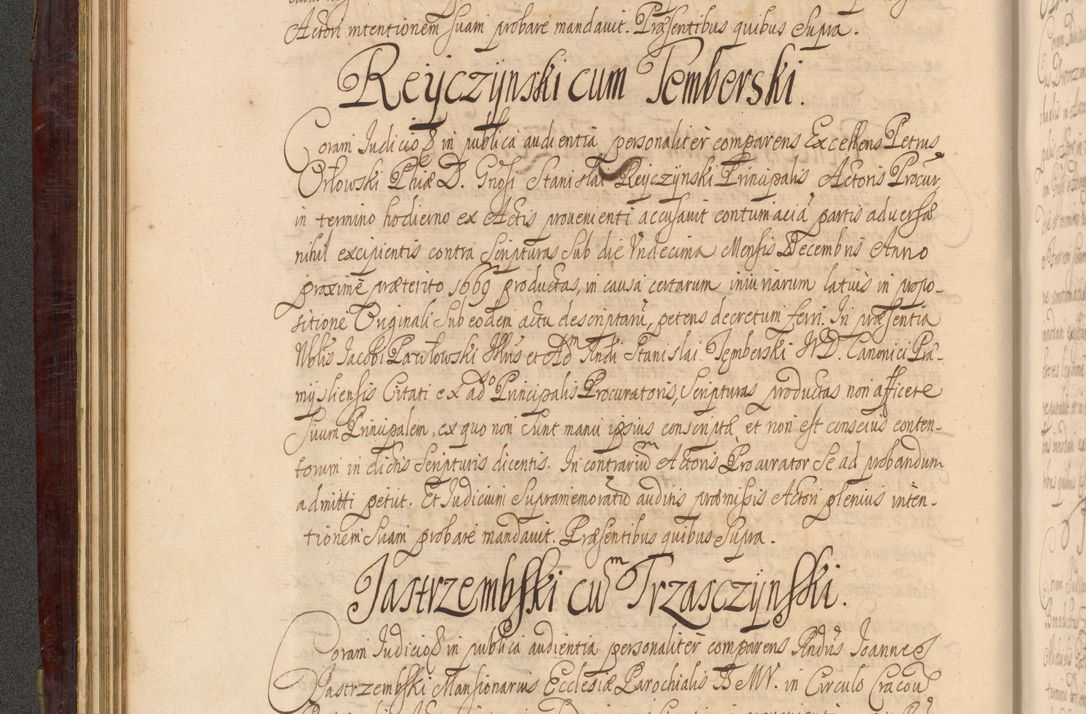 Actori intentionem suam probare mandavit. Præsentibus quibus Supra.
Reÿczÿnski cum Temberski.
Coram Judicio in publica audientia personaliter comparens Excellens Petrus
Orłowski Phiæ D. Gnosi Stanislai Reÿczÿnski Principalis Actoris Procur
in termino hodierno ex Actis provenienti accusavit contumaciã partis adversæ
nihil excipientis contra Scripturas sub die Undecima Mensis Decembris Anno
proxime præterito 1669 productas, in causa certarum iniuriarum latius in propo-
sitione Originali sub eodem actu descriptarũ, petens decretum ferri. In præsentia
Nblis Jacobi Pawłowski Illris et Adm Rndi Stanislai Temberski IVD. Canonici Præ-
mysliensis Citati ex adso Principalis Procuratoris, Scripturas productas non afficere
Suum Principalem, ex quo non sunt manu ipsius conscriptæ et non est conscius conten-
torum in dictis Scripturis dicentis. In contrariũm Actoris Procurator se ad probandum
admitti petiit. Et Judicium Supramemoratũ auditis præmissis Actori plenius inten-
tionem Suam probare mandavit. Præsentibus quibus Supra.
Jastrzembski cum Trzasczÿnski.
Coram Judicio in publica audientia personaliter comparens Rndus Joannes
Jastrzembski Mansionarius Ecclesiæ Parochialis B M V. in Circulo Cracov